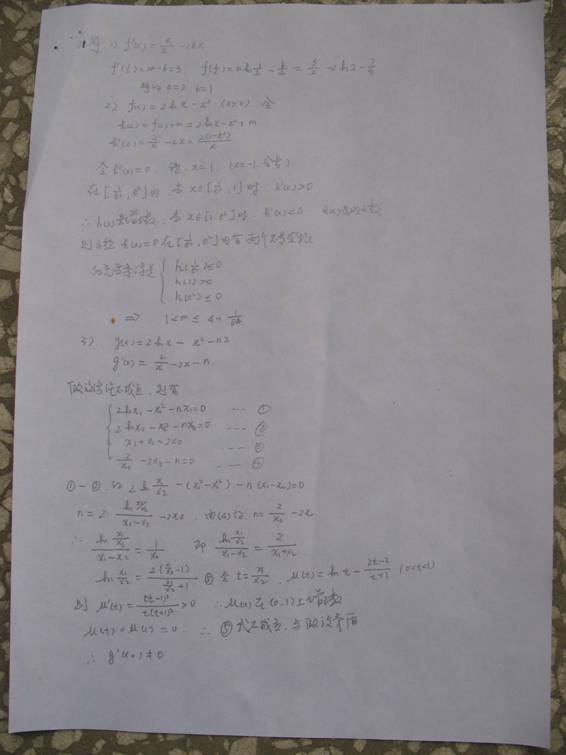 解 1) f'(x)=a/x-2bx
f'(1/2)=m-b=3. f(1/2)=a ln 1/2 - b/4 =
得 a=2 b=1
2) f(x)=2lnx-x² (x>0). 令
h(x)=f(x)+m=2lnx-x²+m
h'(x)=2/x-2x=2(1-x²)/x
令 h'(x)=0. 得 x=1. (x=-1. 舍去)
在[1/e, e²]内 当 x∈[1/e, 1]时. h'(x)>0
∴ h(x)是增函数. 当 x∈[1,e²]时. h'(x)<0. h(x)是减函数
则方程 h(x)=0 在[1/e, e²]内有两个不等实根
的充要条件是 { h(1/e)≤0
h(1)>0
h(e²)≤0
⇒ 1<m≤
3) g(x)=2lnx-x²-nx
g'(x)=2/x-2x-n
假设结论不成立. 则有
{ 2lnx₁-x₁²-nx₁=0 ··· ①
2lnx₂-x₂²-nx₂=0 ··· ②
x₁+x₂=2x₀ ··· ③
2/x₀-2x₀-n=0 ··· ④
①-②. 得 2ln x₁/x₂-(x₁²-x₂²)-n(x₁-x₂)=0
n=2·(ln x₁/x₂)/(x₁-x₂)-2x₀. 由(4)得 n=2/x₀-2x₀
∴ (ln x₁/x₂)/(x₁-x₂)=1/x₀ 即 (ln x₁/x₂)/(x₁-x₂)=2/(x₁+x₂)
ln x₁/x₂=2(x₁/x₂-1)/(x₁/x₂+1) ⑤ 令 t=x₁/x₂. μ(t)=ln t-(2t-2)/(t+1) (0<t<1)
则 μ'(t)=(t-1)²/t(t+1)²>0 ∴ μ(t)在(0,1)上增函数
μ(t)<μ(1)=0. ∴ ⑤式不成立. 与假设矛盾
∴ g'(x₀)≠0